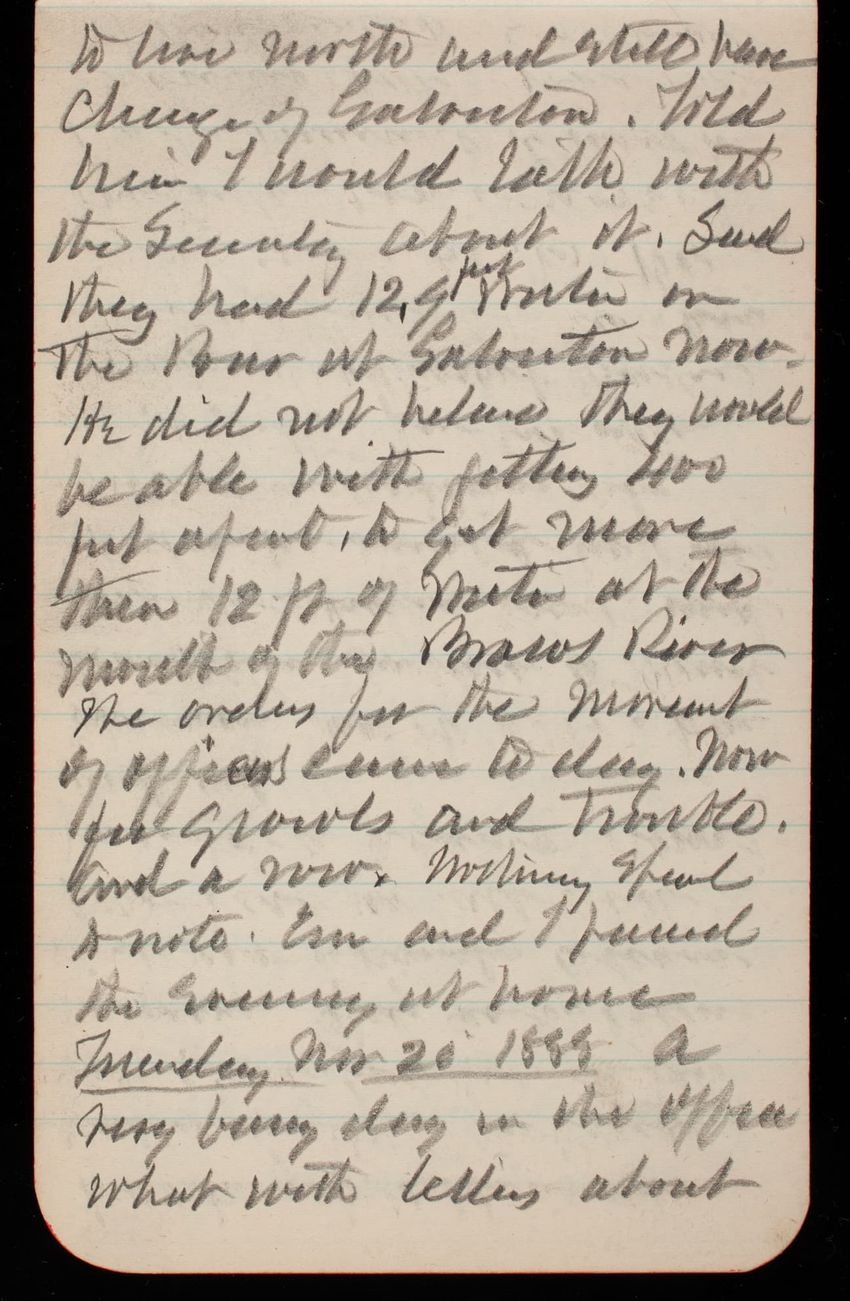 to live north and still have
charge of Galveston. Told
him I would talk with
the Secretary about it. Said
they had 12,9 feet water on
the Bar at Galveston now.
He did not believe they would
be able with jetties
feet apart, to get more
than 12 ft of water at the
mouth of the Brazos River
The orders for the movement
of officers came to day. Now
for growls and trouble.
and a row. Nothing special
to note. Em and I passed
the evening at home
Tuesday Nov 20 1888 A
very busy day in the office
what with letters about